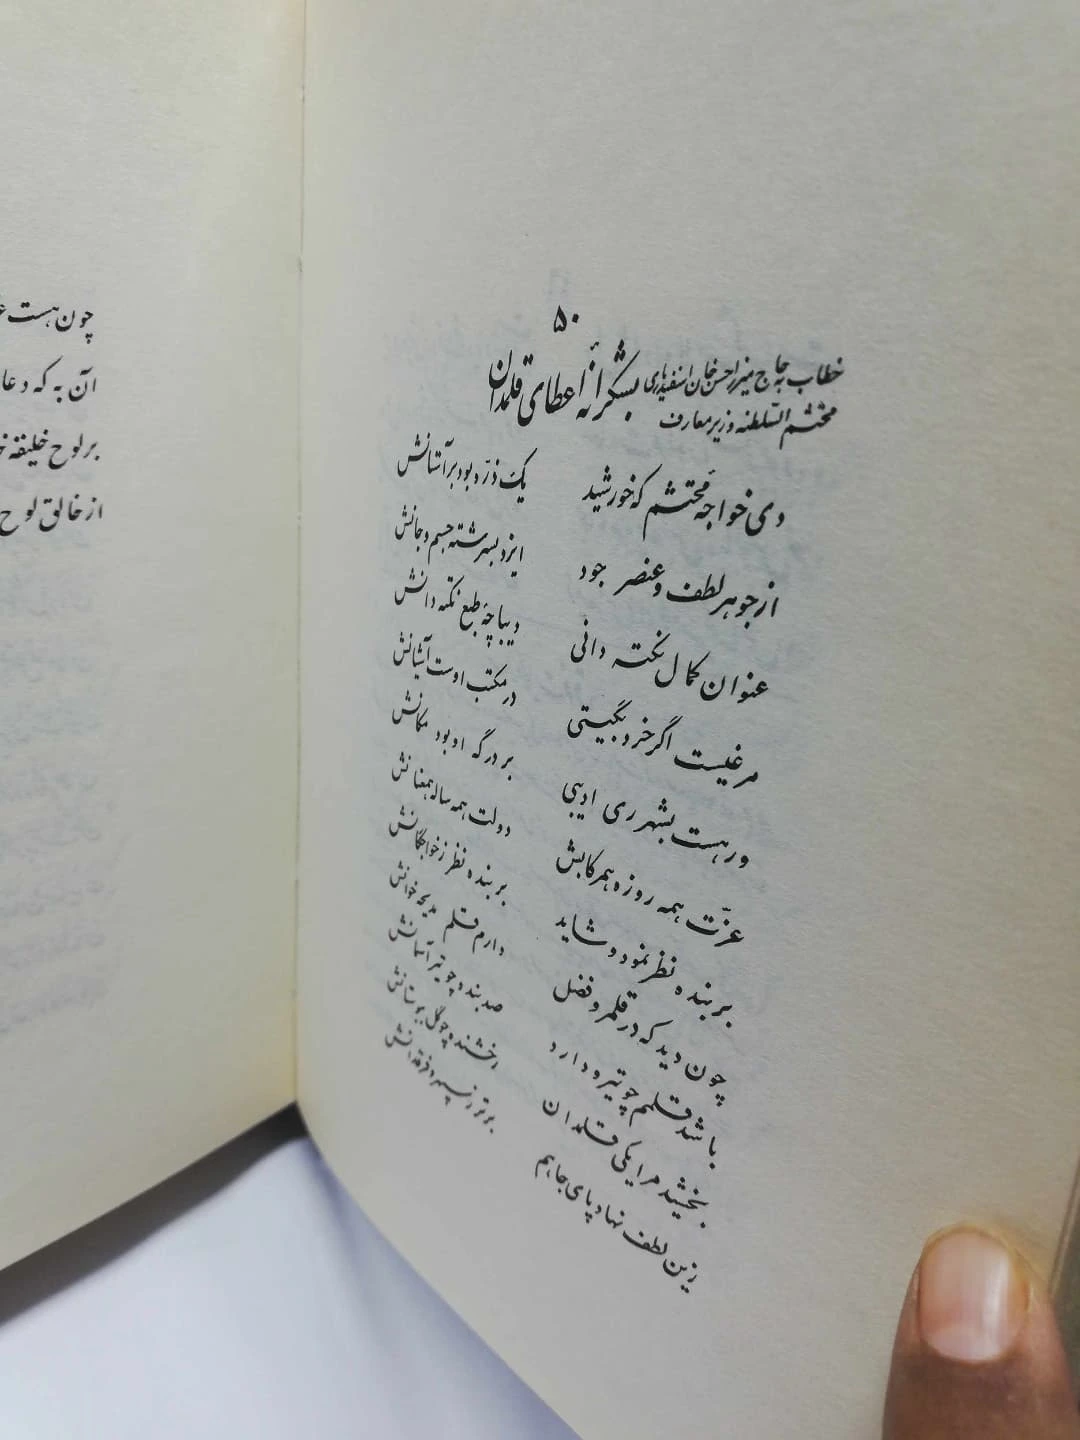 ۵۰
بشکرانهٔ اعطای قلمدان
خطاب به حاج میرزا حسن خان اسفندیاری
محتشم السلطنه وزیر معارف
دی خواجه محتشم که خورشید یک ذرّه بود بر آستانش
از جوهر لطف و عنصر جود ایزد بسرشته جسم و جانش
عنوان کمال نکته دانی دیباچهٔ طبع نکته دانش
مرغیست اگر خرد بگیتی در مکتب اوست آشیانش
ور هست بشهر ری ادیبی بر درگه او بود مکانش
عزّت همه روزه همرکابش دولت همه ساله همعنانش
بر بنده نظر نمود و شاید بر بنده نظر ز خواجگانش
چون دید که در قلمرو فضل دارم قلم مدیحه خوانش
باشد قلم چو تیر و دارد صد بنده چو تیر آسمانش
بخشید مرا یکی قلمدان رخشنده چو گل بوستانش
زین لطف نهاد پای جاهم برتر ز سپهر و فرقدانش
چون هست
آن به که دعا
بر لوح خلیفه
از خالق لوح